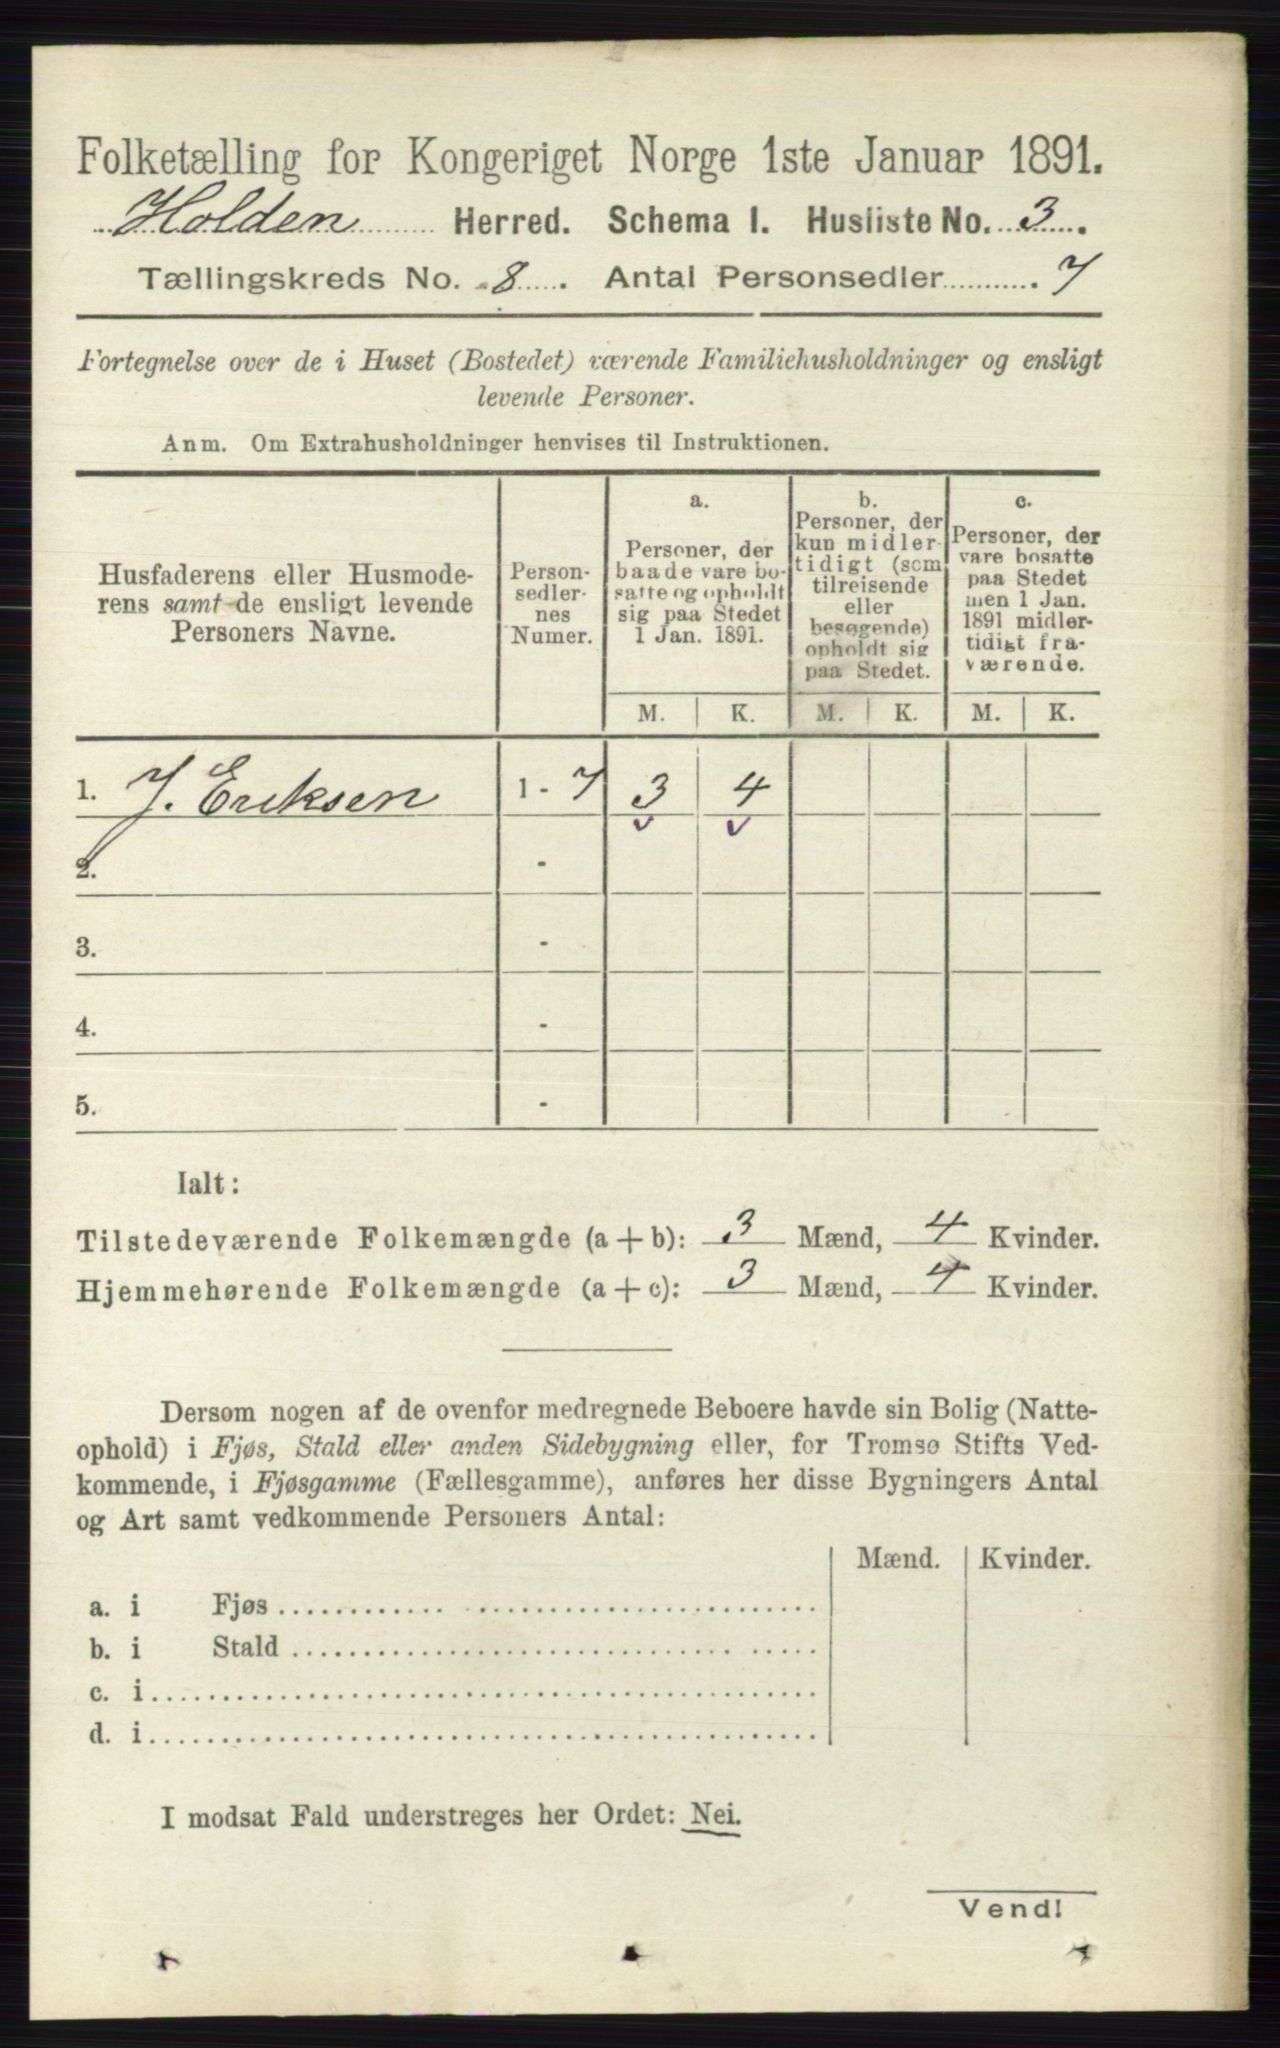 Folketælling for Kongeriget Norge 1ste Januar 1891.
Holden Herred. Schema I. Husliste No. 3.
Tællingskreds No. 8. Antal Personsedler 7
Fortegnelse over de i Huset (Bostedet) værende Familiehusholdninger og ensligt
levende Personer.
Anm. Om Extrahusholdninger henvises til Instruktionen.
Husfaderens eller Husmode-
rens samt de ensligt levende
Personers Navne.
Person-
sedler-
nes
Numer.
a.
Personer, der
baade vare bo-
satte og opholdt
sig paa Stedet
1 Jan. 1891.
b.
Personer, der
kun midler-
tidigt (som
tilreisende
eller
besøgende)
opholdt sig
paa Stedet.
c.
Personer, der
vare bosatte
paa Stedet
men 1 Jan.
1891 midler-
tidigt fra-
værende.
M. K. M. K. M. K.
1. J. Eriksen 1 - 7 3 4
2. -
3. -
4. -
5. -
Ialt:
Tilstedeværende Folkemængde (a + b): 3 Mænd, 4 Kvinder.
Hjemmehørende Folkemængde (a + c): 3 Mænd, 4 Kvinder.
Dersom nogen af de ovenfor medregnede Beboere havde sin Bolig (Natte-
ophold) i Fjøs, Stald eller anden Sidebygning eller, for Tromsø Stifts Ved-
kommende, i Fjøsgamme (Fællesgamme), anføres her disse Bygningers Antal
og Art samt vedkommende Personers Antal:
Mænd. Kvinder.
a. i Fjøs
b. i Stald
c. i
d. i
I modsat Fald understreges her Ordet: Nei.
Vend!